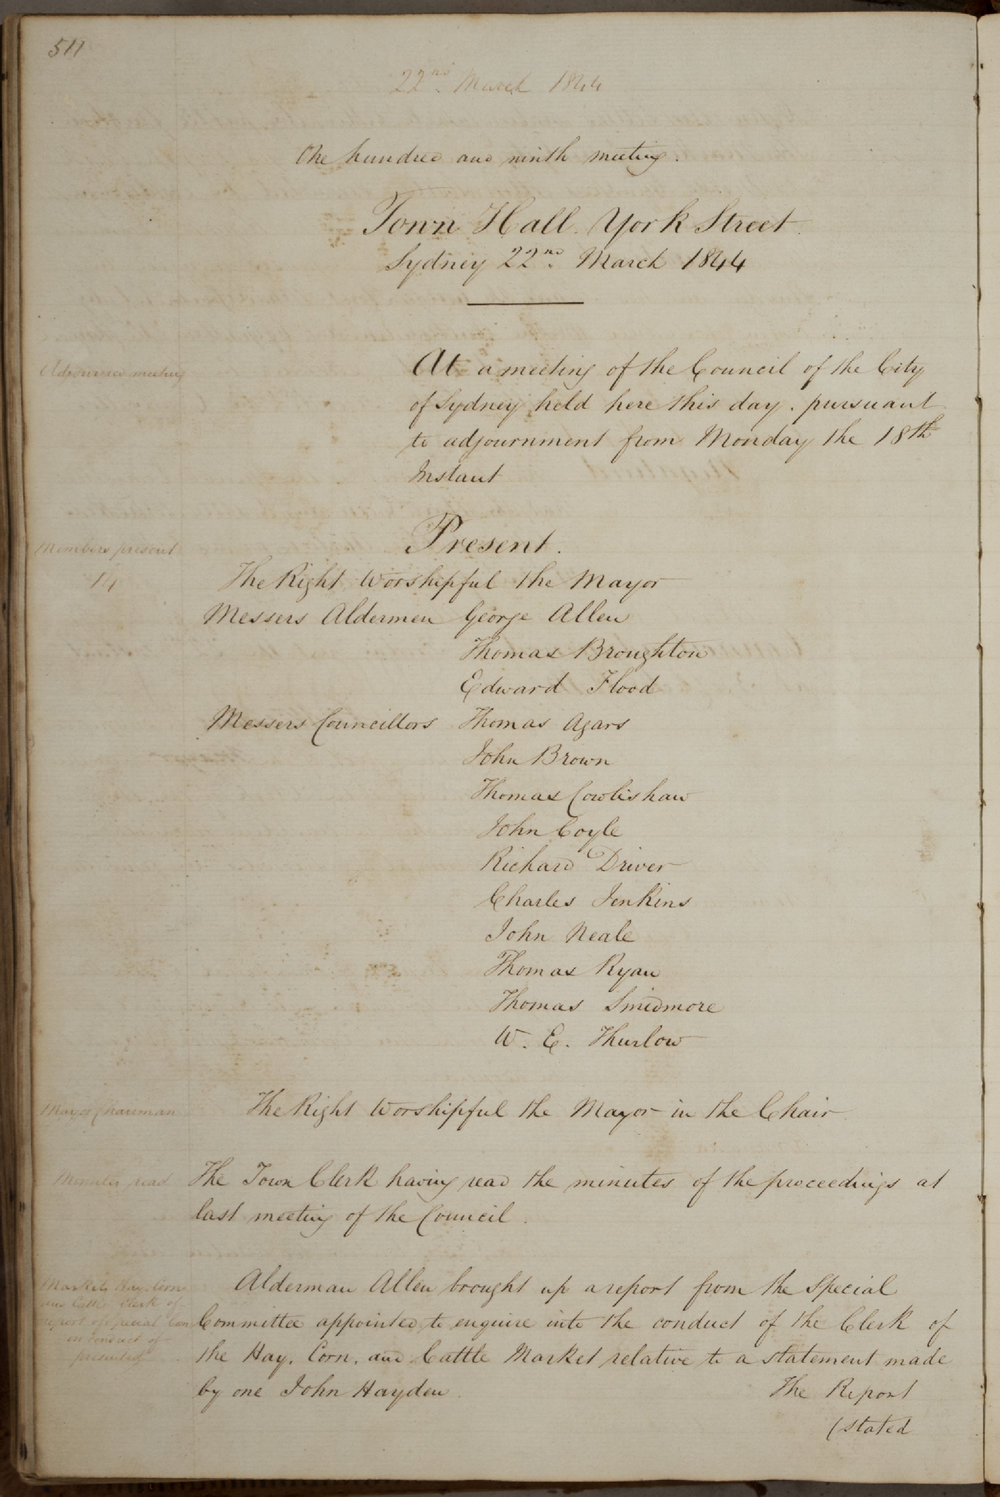 511
22nd. March 1844
One hundred and ninth meeting.
Town Hall. York Street.
Sydney 22nd. March 1844
Adjourned meeting
At a meeting of the Council of the City
of Sydney held here this day. pursuant
to adjournment from Monday the 18th
Instant
Members present
14
Present.
The Right Worshipful the Mayor
Messers Aldermen George Allen
Thomas Broughton
Edward Flood
Messers Councillors Thomas Agars
John Brown
Thomas Cowlishaw
John Coyle
Richard Driver
Charles Jenkins
John Neale
Thomas Ryan
Thomas Smidmore
W. E. Thurlow
Mayor Chairman
The Right Worshipful the Mayor in the Chair
Minutes read
The Town Clerk having read the minutes of the proceedings at
last meeting of the Council.
Markets Hay, Corn
and Cattle Clerk of
report of Special Com
on conduct of
presented
Alderman Allen brought up a report from the Special
Committee appointed to enquire into the conduct of the Clerk of
the Hay, Corn, and Cattle Market relative to a statement made
by one John Hayden. The Report
(stated